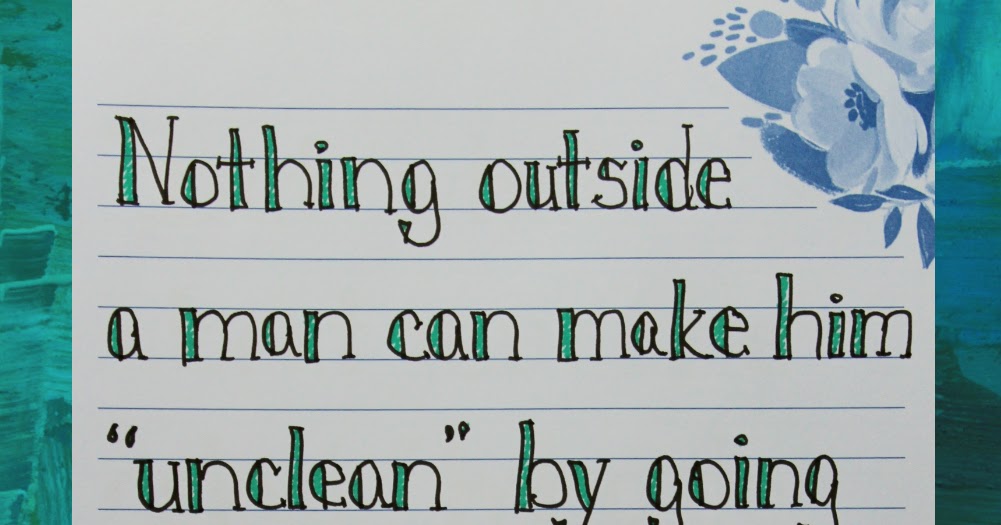 Nothing outside
a man can make him
“unclean” by going